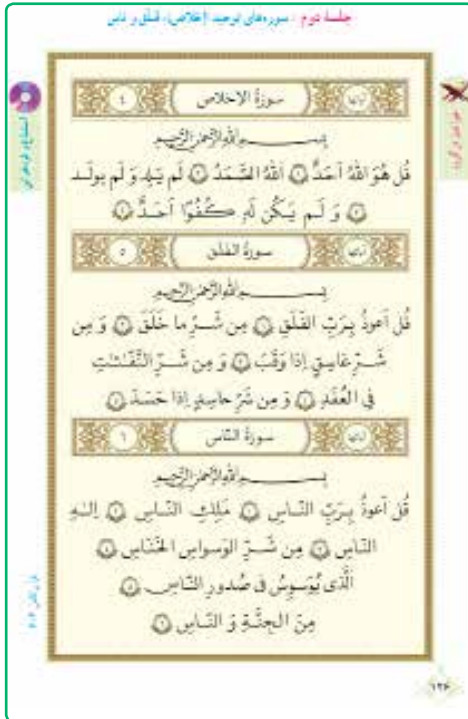 جلسهٔ دوم : سوره‌های توحید (اخلاص)، فلق و ناس
آیاتها سورة الاخلاص ٤
بسم الله الرحمن الرحیم
قُل هُوَ اللهُ اَحَدٌ ١ اَللهُ الصَّمَدُ ٢ لَم یَلِد وَ لَم یولَد
٣ وَ لَم یَکُن لَهو کُفُوًا اَحَدٌ ٤
آیاتها سورة الفلق ٥
بسم الله الرحمن الرحیم
قُل اَعوذُ بِرَبِّ الفَلَقِ ١ مِن شَرِّ ما خَلَقَ ٢ وَ مِن
شَرِّ غاسِقٍ اِذا وَقَبَ ٣ وَ مِن شَرِّ النَّفّاثاتِ
فِی العُقَدِ ٤ وَ مِن شَرِّ حاسِدٍ اِذا حَسَدَ ٥
آیاتها سورة النّاس ٦
بسم الله الرحمن الرحیم
قُل اَعوذُ بِرَبِّ النّاسِ ١ مَلِکِ النّاسِ ٢ اِلٰهِ
النّاسِ ٣ مِن شَرِّ الوَسواسِ الخَنّاسِ ٤
اَلَّذی یُوَسوِسُ فی صُدورِ النّاسِ ٥
مِنَ الجِنَّةِ وَ النّاسِ ٦
١٢۶